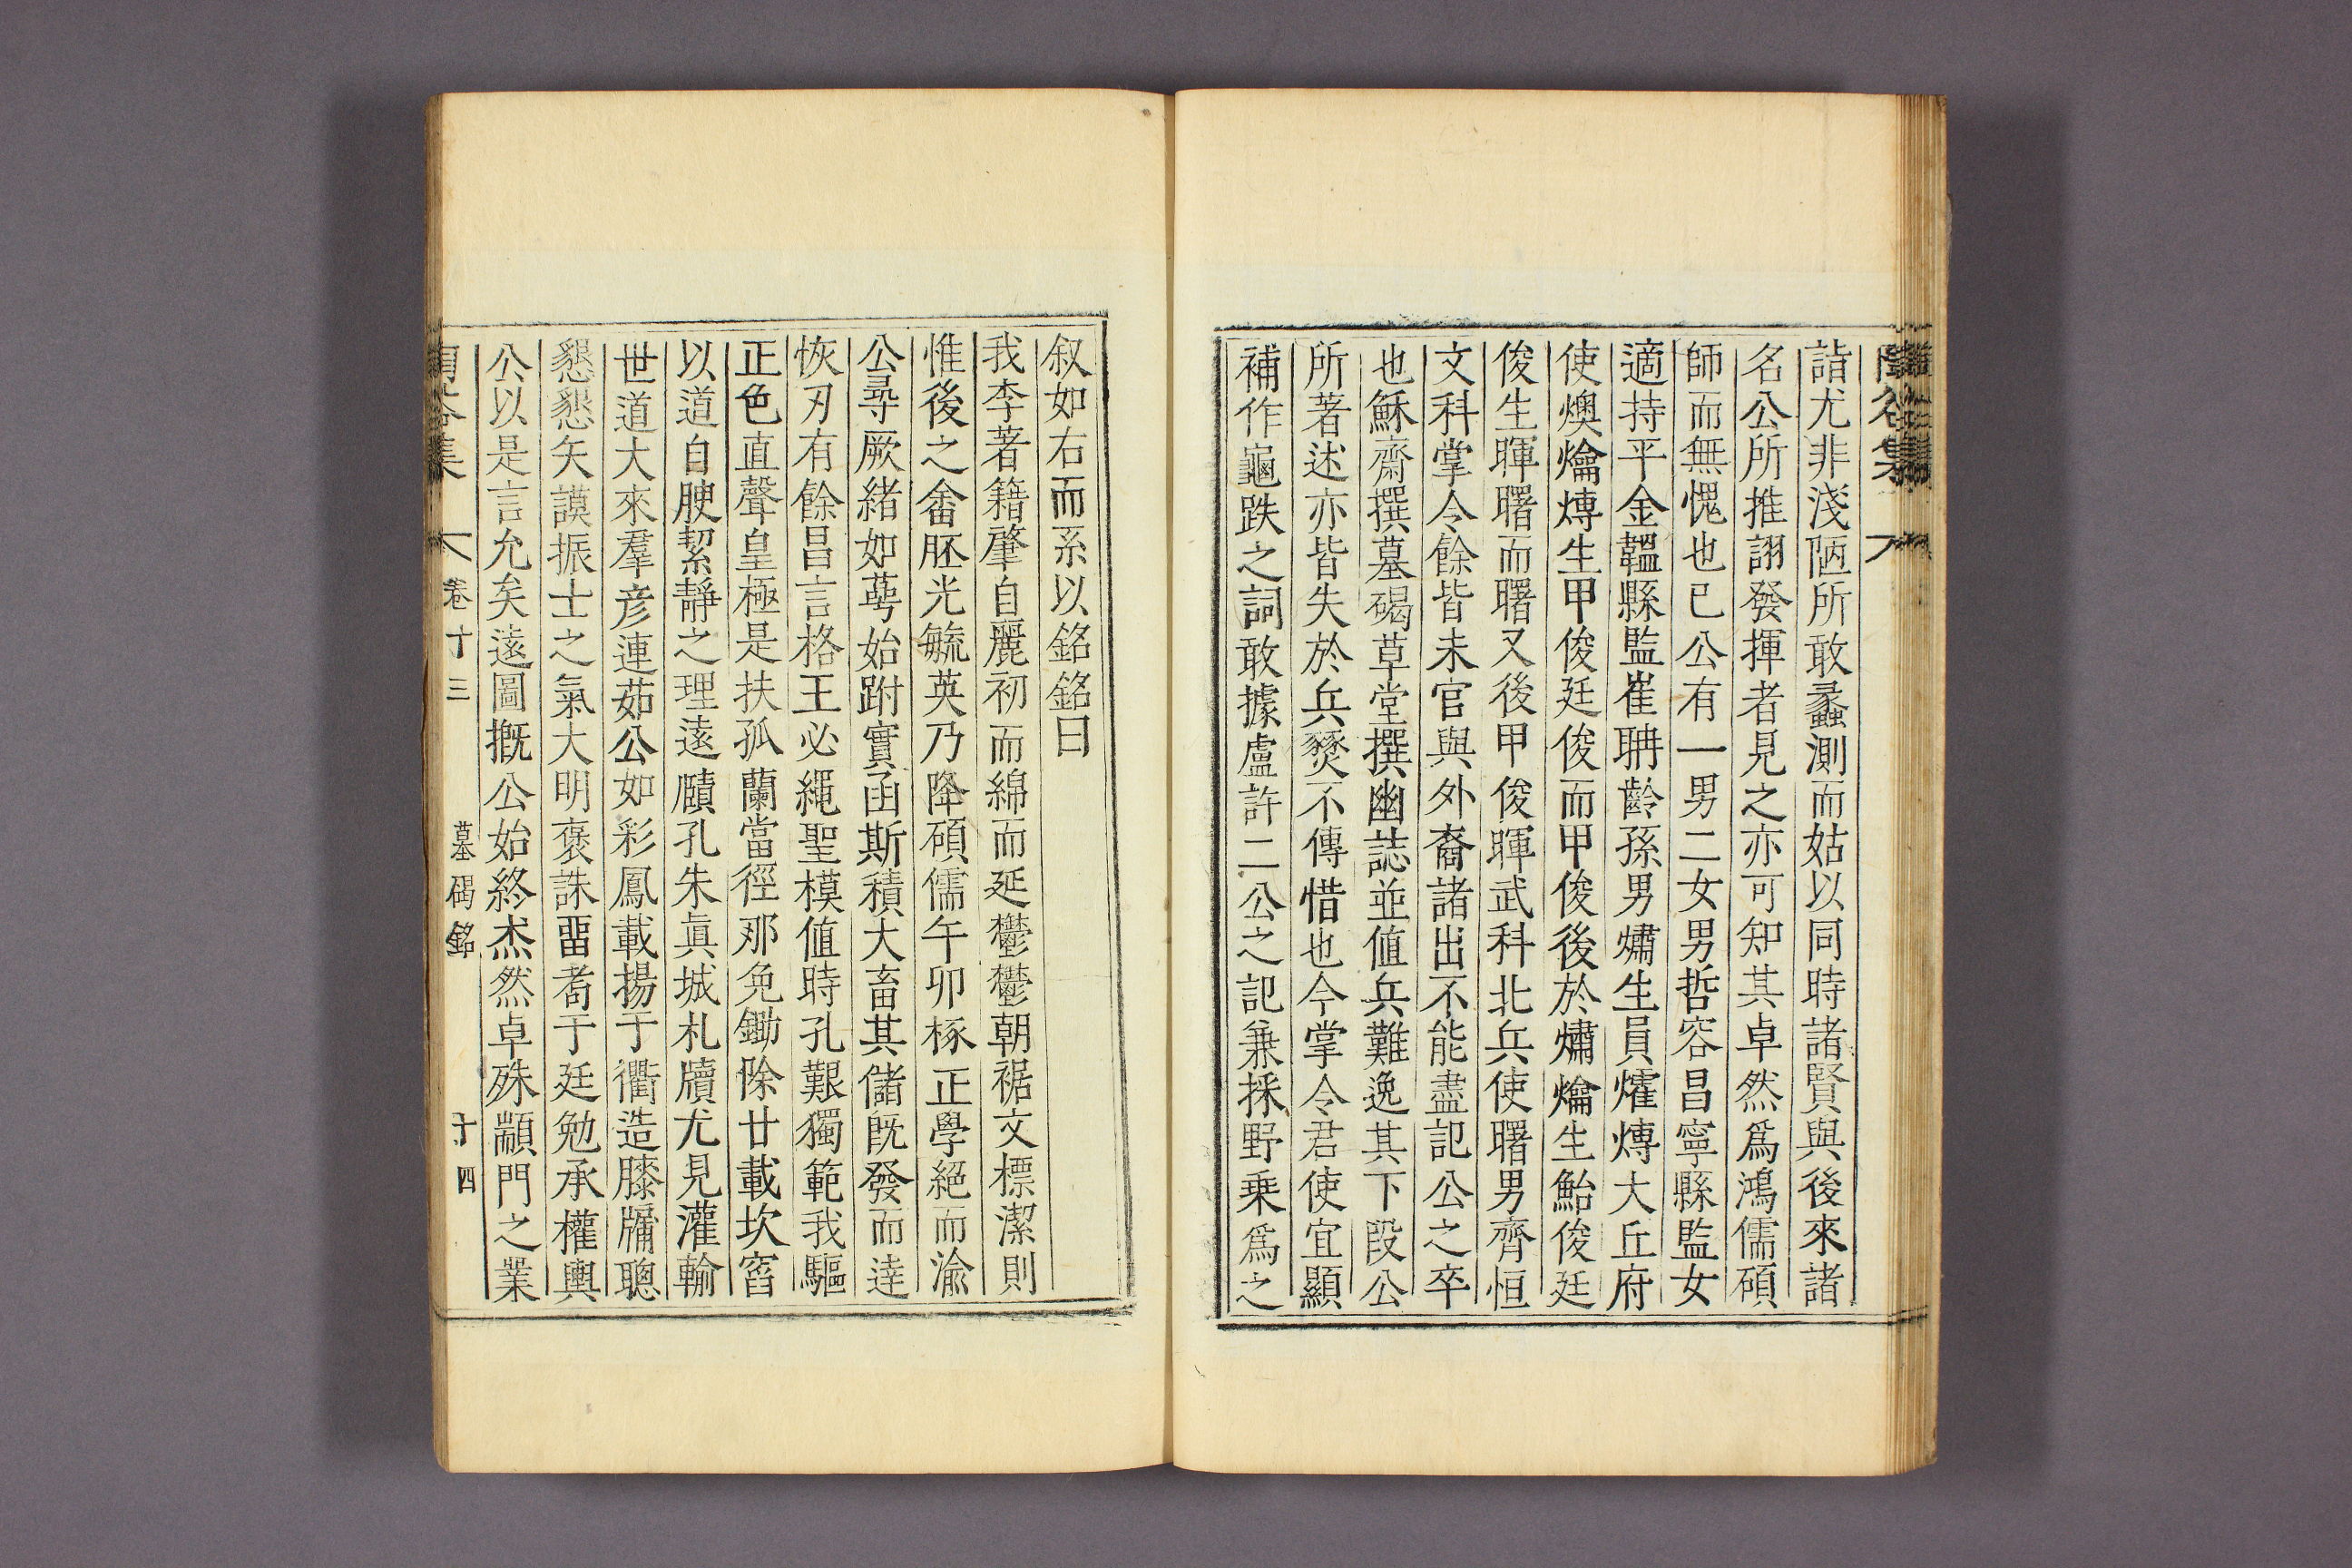 詣尤非淺陋所敢蠡測而姑以同時諸賢與後來諸
名公所推詡發揮者見之亦可知其卓然爲鴻儒碩
師而無愧也已公有一男二女男哲容昌寧縣監女
適持平金韞縣監崔聃齡孫男熽生員爠煿大丘府
使燠爚煿生甲俊廷俊而甲俊後於熽爚生鮐俊廷
俊生暉曙而曙又後甲俊暉武科北兵使曙男齊恒
文科掌令餘皆未官與外裔諸出不能盡記公之卒
也穌齋撰墓碣草堂撰幽誌並値兵難逸其下段公
所著述亦皆失於兵燹不傳惜也今掌令君使宜顯
補作龜趺之詞敢據盧許二公之記兼採野乗爲之
叙如右而系以銘銘曰
我李著籍肇自麗初而綿而延鬱鬱朝裾文標潔則
惟後之畬胚光毓英乃降碩儒午卯椓正學絕而渝
公尋厥緖如蕚始跗實函斯積大畜其儲旣發而逹
恢刃有餘昌言格王必繩聖模値時孔艱獨範我驅
正色直聲皇極是扶孤蘭當徑那免鋤除廿載坎窞
以道自腴絜靜之理遠願孔朱眞城札牘尤見灌輸
世道大來羣彦連茹公如彩鳳載揚于衢造膝牗聰
懇懇矢謨振士之氣大明褒誅畱耈于廷勉承權輿
公以是言允矣遠圖摡公始終杰然卓殊顓門之業
卷十三 墓碣銘 十四